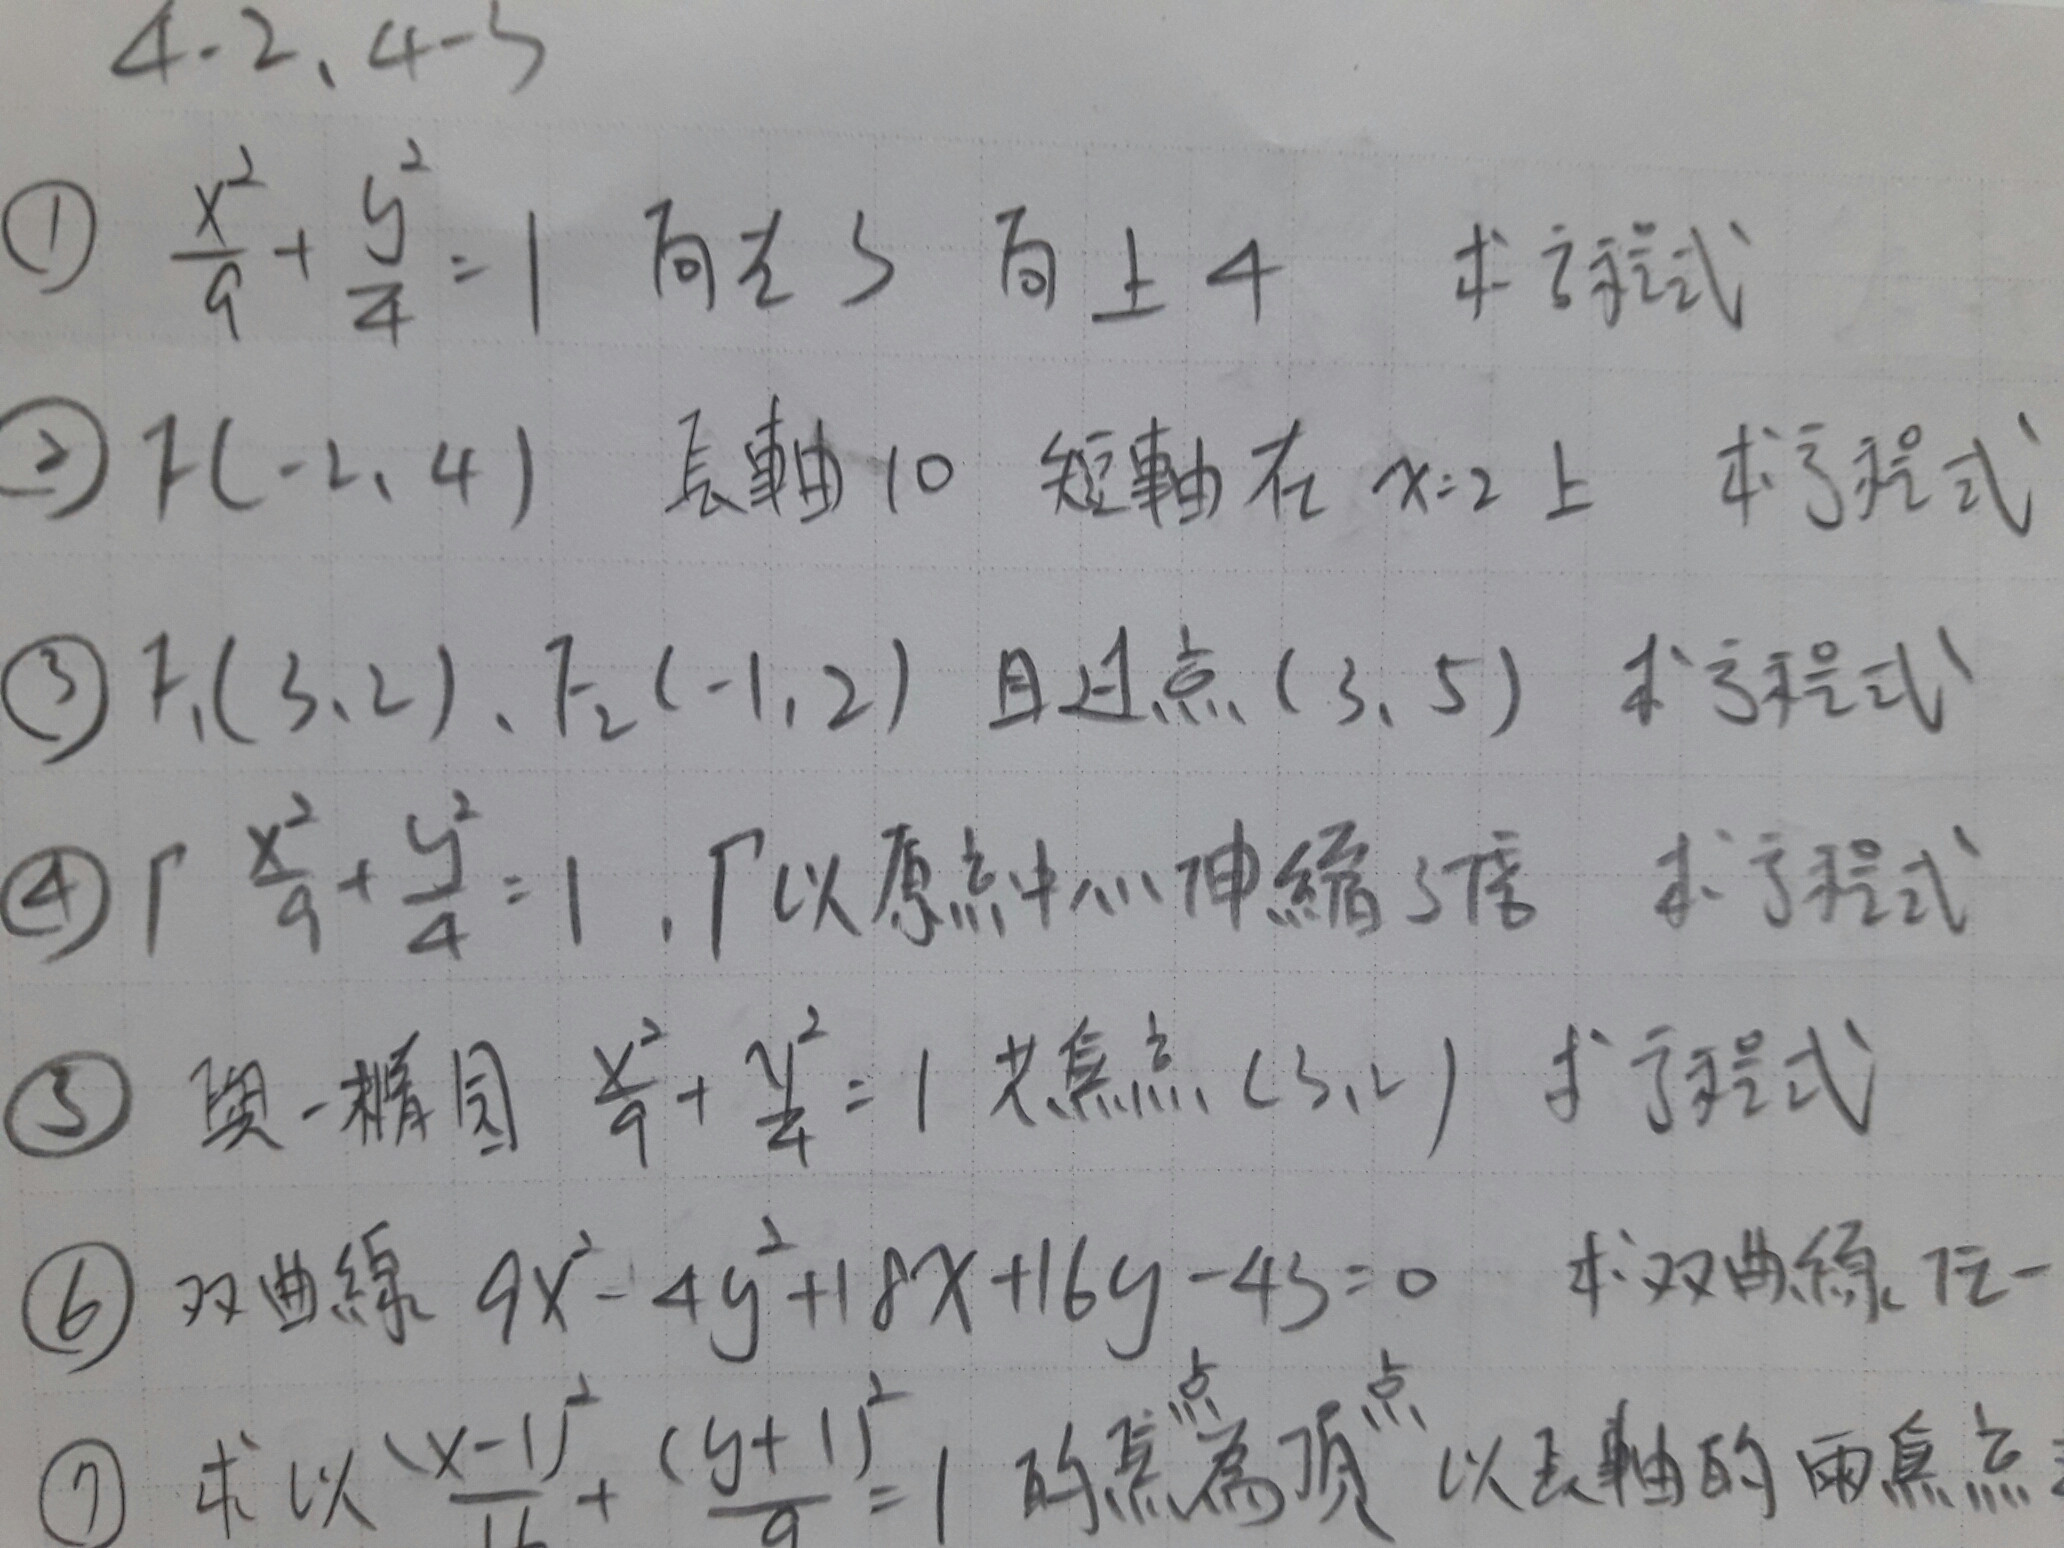 4-2、4-3
① x²/9 + y²/4 = 1 向左3 向上4 求方程式
② F(-2, 4) 長軸10 短軸在 x=2 上 求方程式
③ F₁(3, 2)、F₂(-1, 2) 且过点(3, 5) 求方程式
④ Γ x²/9 + y²/4 = 1 , Γ以原点中心伸縮3倍 求方程式
⑤ 與一橢圆 x²/9 + y²/4 = 1 共焦点 (3, 2) 求方程式
⑥ 双曲線 9x² - 4y² + 18x + 16y - 43 = 0 求双曲線 任一
⑦ 求以 (x-1)²/16 + (y+1)²/9 = 1 的焦点為頂点 以長軸的兩焦点